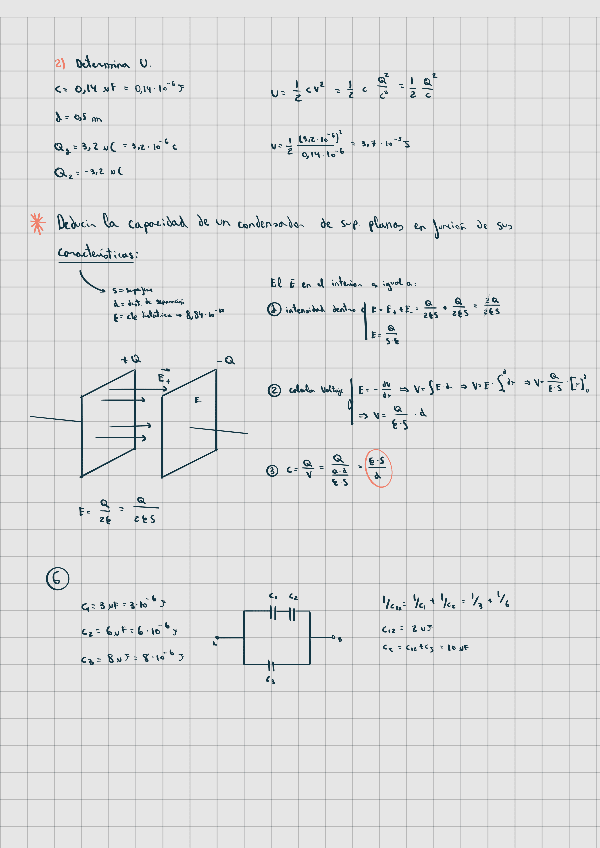 2) Determina U.
C = 0,14 μF = 0,14·10⁻⁶ F
d = 0,5 m
Q₁ = 3,2 μC = 3,2·10⁻⁶ C
Q₂ = -3,2 μC
U = 1/2 C V² = 1/2 C Q²/C² = 1/2 Q²/C
U = 1/2 (3,2·10⁻⁶)²/0,14·10⁻⁶ = 3,7·10⁻⁵ J
* Deducir la capacidad de un condensador de sup planas en función de sus
características:
S = superficie
d = dist. de separación
El E en el interior es igual a:
① intensidad dentro E = E₊ + E₋ = Q/2ξS + Q/2ξS = 2Q/2ξS
E = Q/S·ξ
+Q
-Q
E₊
E
② calcular voltaje E = -dv/dr ⇒ V = ∫E dr ⇒ V = E·∫₀ᵈ dr ⇒ V = Q/ξ·S · [r]₀ᵈ
⇒ V = Q/ξ·S · d
③ C = Q/V = Q/(Q·d/ξS) = ξ·S/d
E = Q/2ξ = Q/2ξS
6
C₁ = 3 μF = 3·10⁻⁶ F
C₂ = 6 μF = 6·10⁻⁶ F
C₃ = 8 μF = 8·10⁻⁶ F
C₁ C₂
A
B
C₃
1/C₁₂ = 1/C₁ + 1/C₂ = 1/3 + 1/6
C₁₂ = 2 μF
C₁₂ + C₃ = 10 μF